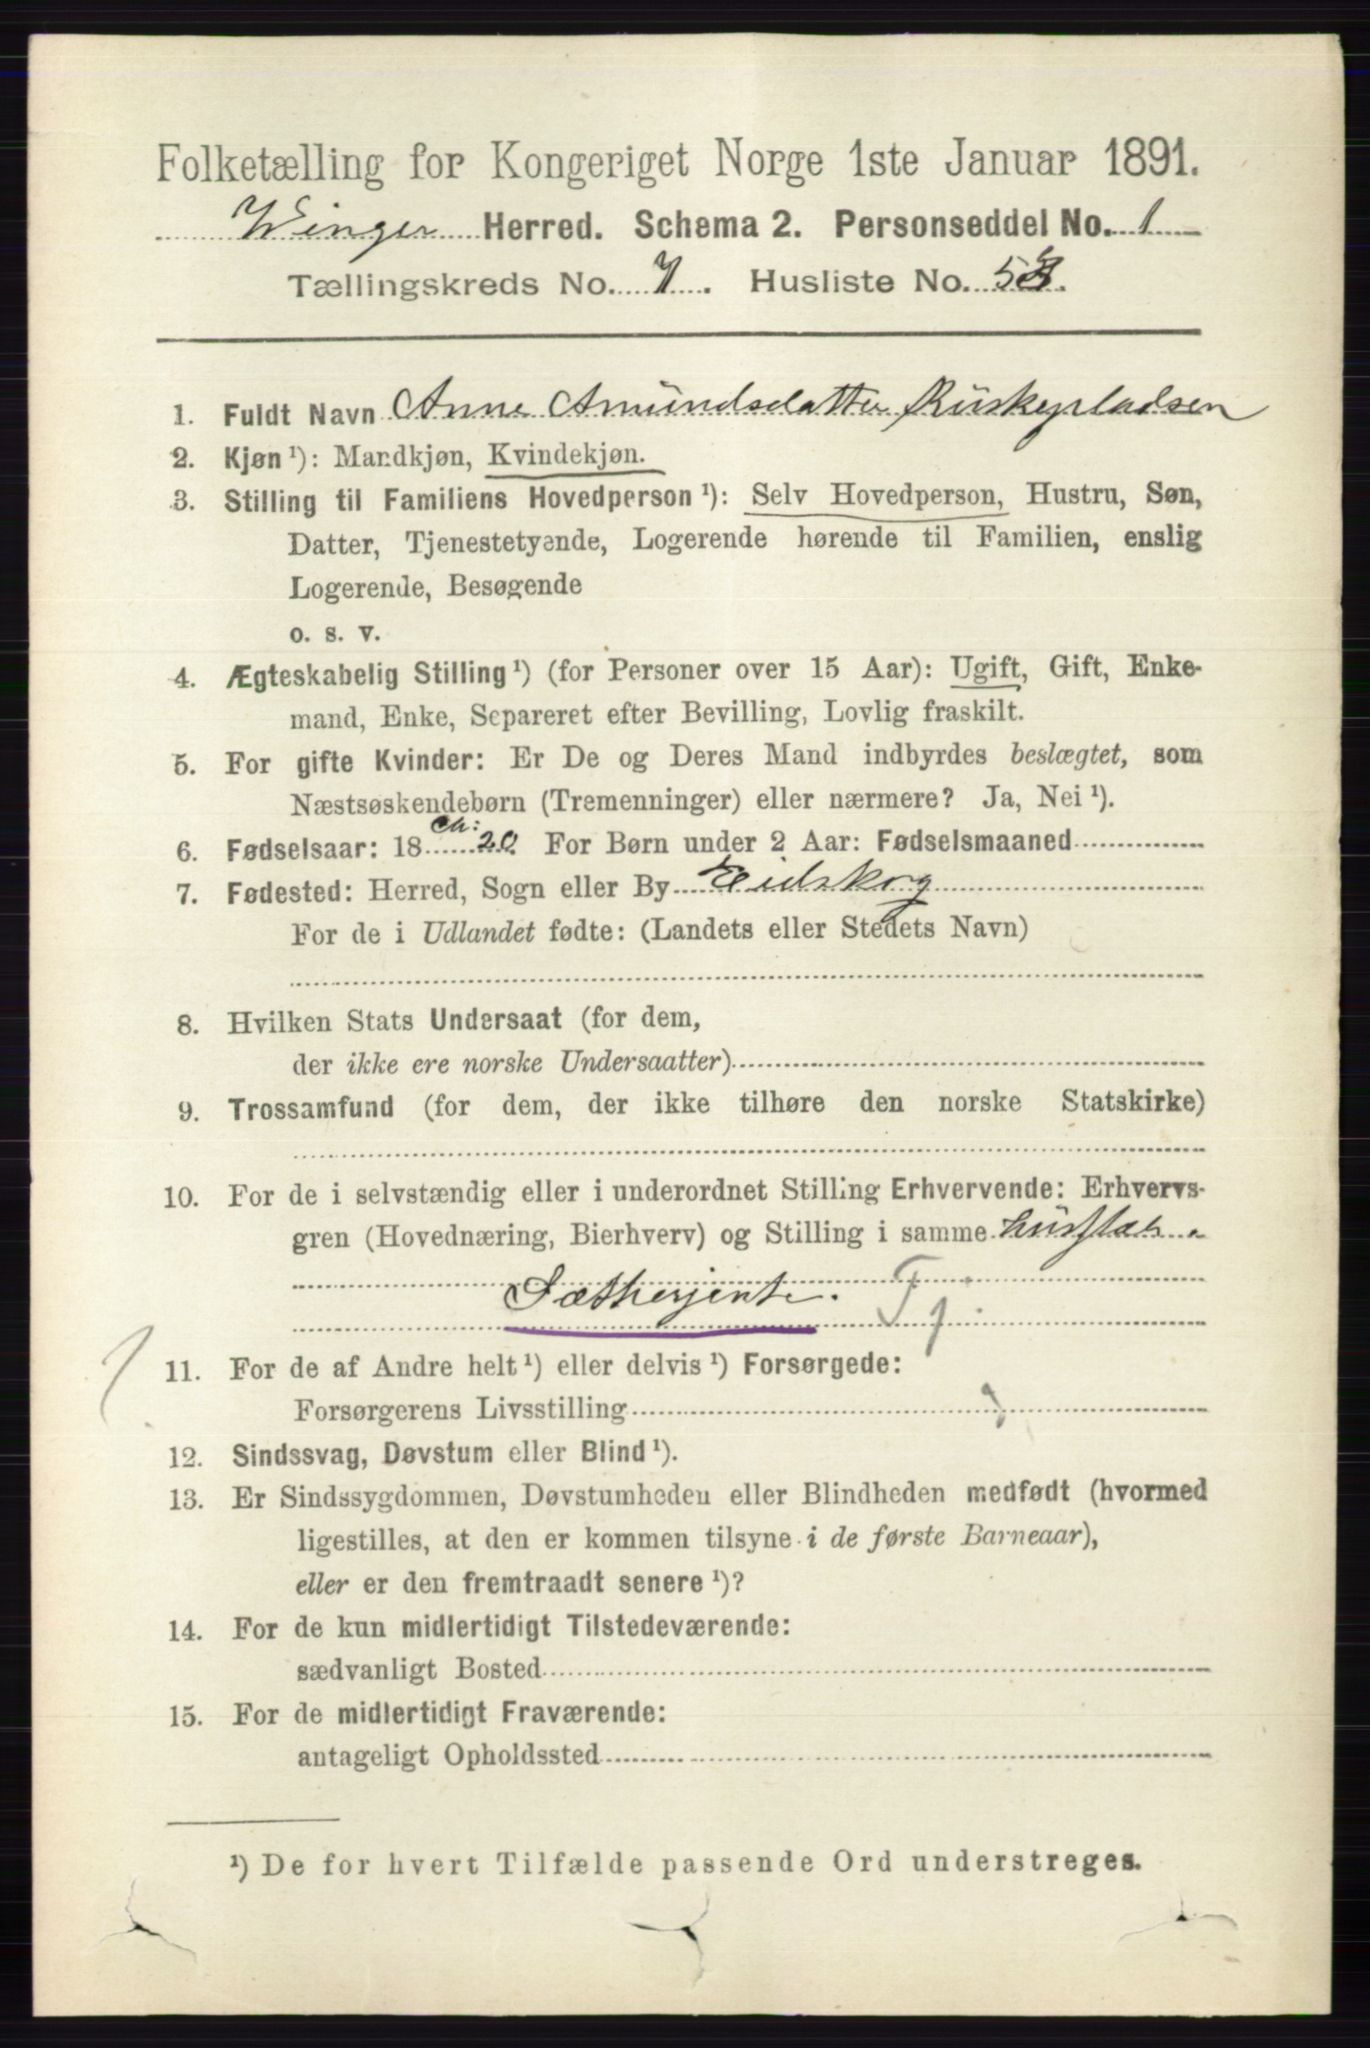 Folketælling for Kongeriget Norge 1ste Januar 1891.
Winger Herred. Schema 2. Personseddel No. 1
Tællingskreds No. 7. Husliste No. 53.
1. Fuldt Navn Anne Amundsdatter
2. Kjøn ¹): Mandkjøn, Kvindekjøn.
3. Stilling til Familiens Hovedperson ¹): Selv Hovedperson, Hustru, Søn,
Datter, Tjenestetyende, Logerende hørende til Familien, enslig
Logerende, Besøgende
o. s. v.
4. Ægteskabelig Stilling ¹) (for Personer over 15 Aar): Ugift, Gift, Enke-
mand, Enke, Separeret efter Bevilling, Lovlig fraskilt.
5. For gifte Kvinder: Er De og Deres Mand indbyrdes beslægtet, som
Næstsøskendebørn (Tremenninger) eller nærmere? Ja, Nei ¹).
6. Fødselsaar: 18 20 For Børn under 2 Aar: Fødselsmaaned
7. Fødested: Herred, Sogn eller By Eidskog
For de i Udlandet fødte: (Landets eller Stedets Navn)
8. Hvilken Stats Undersaat (for dem,
der ikke ere norske Undersaatter)
9. Trossamfund (for dem, der ikke tilhøre den norske Statskirke)
10. For de i selvstændig eller i underordnet Stilling Erhvervende: Erhvervs-
gren (Hovednæring, Bierhverv) og Stilling i samme
Sætherjente. Tj.
11. For de af Andre helt ¹) eller delvis ¹) Forsørgede:
Forsørgerens Livsstilling
12. Sindssvag, Døvstum eller Blind ¹).
13. Er Sindssygdommen, Døvstumheden eller Blindheden medfødt (hvormed
ligestilles, at den er kommen tilsyne i de første Barneaar),
eller er den fremtraadt senere ¹)?
14. For de kun midlertidigt Tilstedeværende:
sædvanligt Bosted
15. For de midlertidigt Fraværende:
antageligt Opholdssted
¹) De for hvert Tilfælde passende Ord understreges.